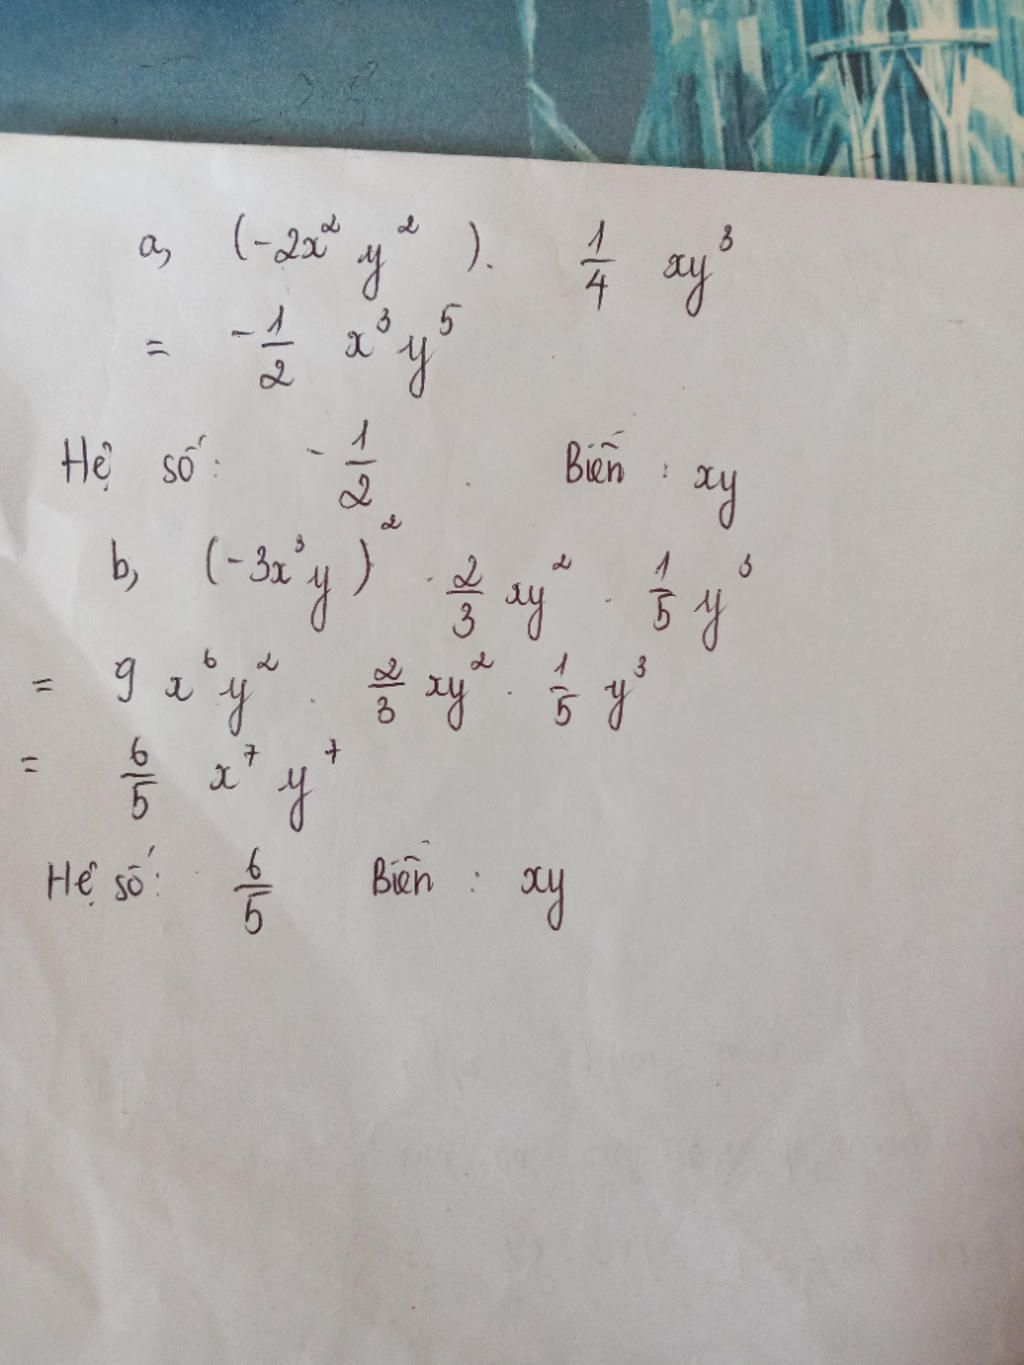 a, (-2x² y² ). 1/4 xy³
= -1/2 x³ y⁵
Hệ số: -1/2 Biến : xy
b, (-3x³y)² . 2/3 xy² . 1/5 y³
= 9 x⁶ y² . 2/3 xy² . 1/5 y³
= 6/5 x⁷ y⁷
Hệ số: 6/5 Biến : xy